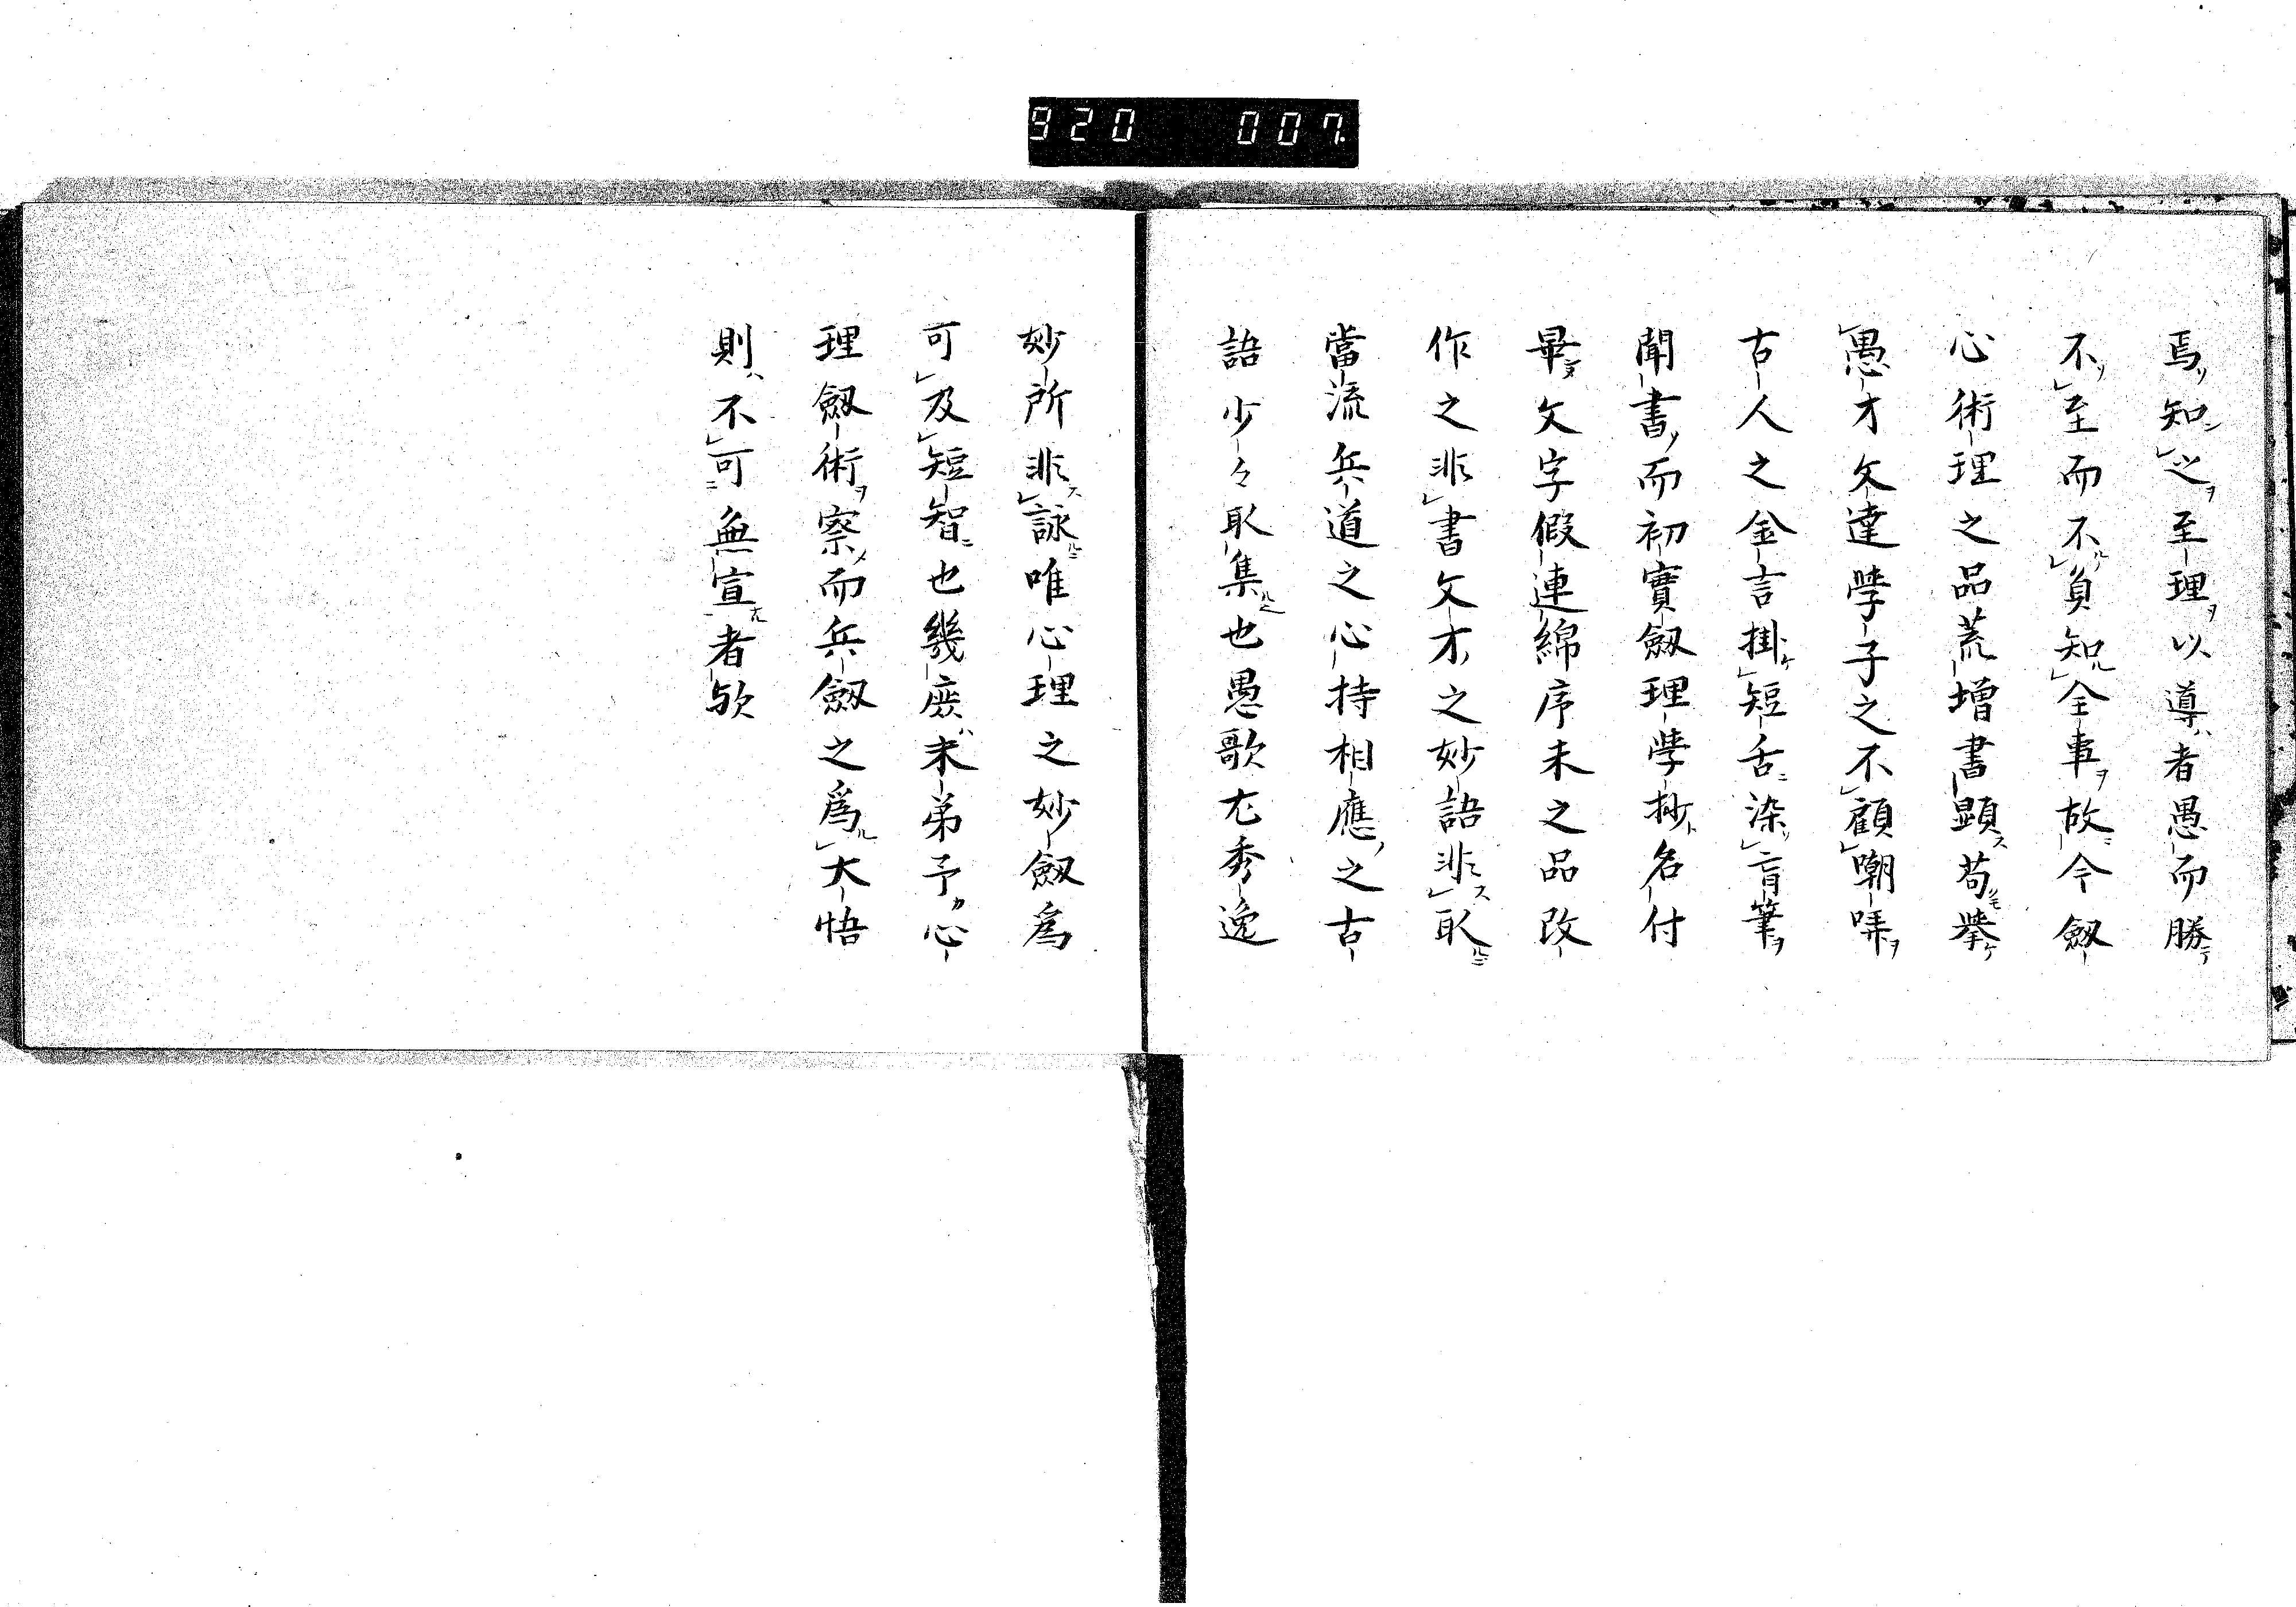 920 007
焉知之至理以導者愚而勝
不至而不負知全事故今劔
心術理之品荒増書顕苟挙
愚才文達學子之不顧嘲哢
古人之金言掛短舌染盲筆
聞書而初實劔理學抄名付
畢文字假連綿序未之品改
作之非書文才之妙語非取
當流兵道之心持相應之古
語少々取集也愚歌尤秀逸
妙所非詠唯心理之妙劔為
可及短智也幾庶末弟予心
理劔術察而兵劔之為大悟
則不可無宣者欤